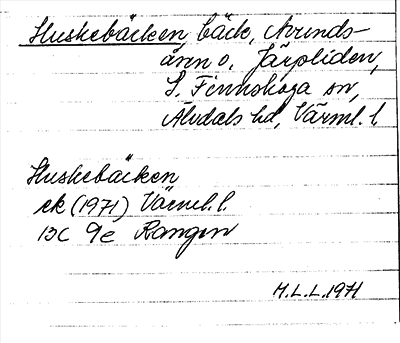 Huskebäcken, bäck, Avunds-
åsen o. Järpliden,
S. Finnskoga sn,
Älvdals hd, Värml. l.
Huskebäcken
ek (1971) Värml. l.
13C 9e Rangen
M.L.L. 1971